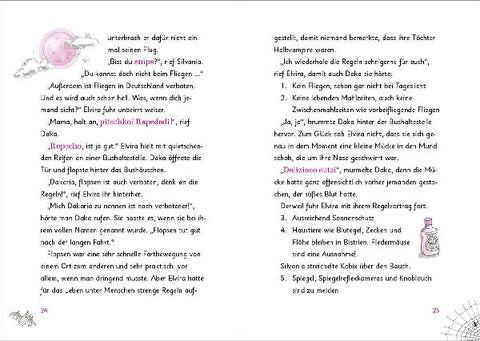 unterbrach er dafür nicht ein-
mal seinen Flug.
„Bist du snips?“, rief Silvania.
„Du kannst doch nicht beim Fliegen ...“
„Außerdem ist Fliegen in Deutschland verboten.
Und es wird auch schon hell. Was, wenn dich je-
mand sieht?“ Elvira fuhr unbeirrt weiter.
„Mama, halt an, pitschko! Rapedadi!“, rief
Daka.
„Rapedso, ist ja gut.“ Elvira hielt mit quietschen-
den Reifen an einer Bushaltestelle. Daka öffnete die
Tür und flopste hinter das Bushäuschen.
„Dakaria, flopsen ist auch verboten, denk an die
Regeln!“, rief Elvira ihr hinterher.
„Mich Dakaria zu nennen ist noch verbotener!“,
hörte man Daka rufen. Sie hasste es, wenn sie bei ih-
rem vollen Namen genannt wurde. „Flopsen tut gut
nach der langen Fahrt.“
Flopsen war eine sehr schnelle Fortbewegung von
einem Ort zum anderen und sehr praktisch, vor
allem, wenn man dringend musste. Aber Elvira hatte
für das Leben unter Menschen strenge Regeln auf-
24
gestellt, damit niemand bemerkte, dass ihre Töchter
Halbvampire waren.
„Ich wiederhole die Regeln sehr gerne für euch“,
rief Elvira, damit auch Daka sie hörte.
1. Kein Fliegen, schon gar nicht bei Tageslicht
2. Keine lebenden Mahlzeiten, auch keine
Zwischenmahlzeiten wie vorbeifliegende Fliegen
„Ja, ja“, brummte Daka hinter der Bushaltestelle
hervor. Zum Glück sah Elvira nicht, dass sie sich ge-
nau in dem Moment eine kleine Mücke in den Mund
schob, die um ihre Nase geschwirrt war.
„Delizioso“, murmelte Daka, denn die Mü-
cke hatte ganz offensichtlich vorher jemanden gesto-
chen, der süßes Blut hatte.
Derweil fuhr Elvira mit ihrem Regelvortrag fort.
3. Ausreichend Sonnenschutz
4. Haustiere wie Blutegel, Zecken und
Flöhe bleiben in Bistrien. Fledermäuse
sind eine Ausnahme!
Silvania streichelte Kobix über den Bauch.
5. Spiegel, Spiegelreflexkameras und Knoblauch
sind zu meiden
25